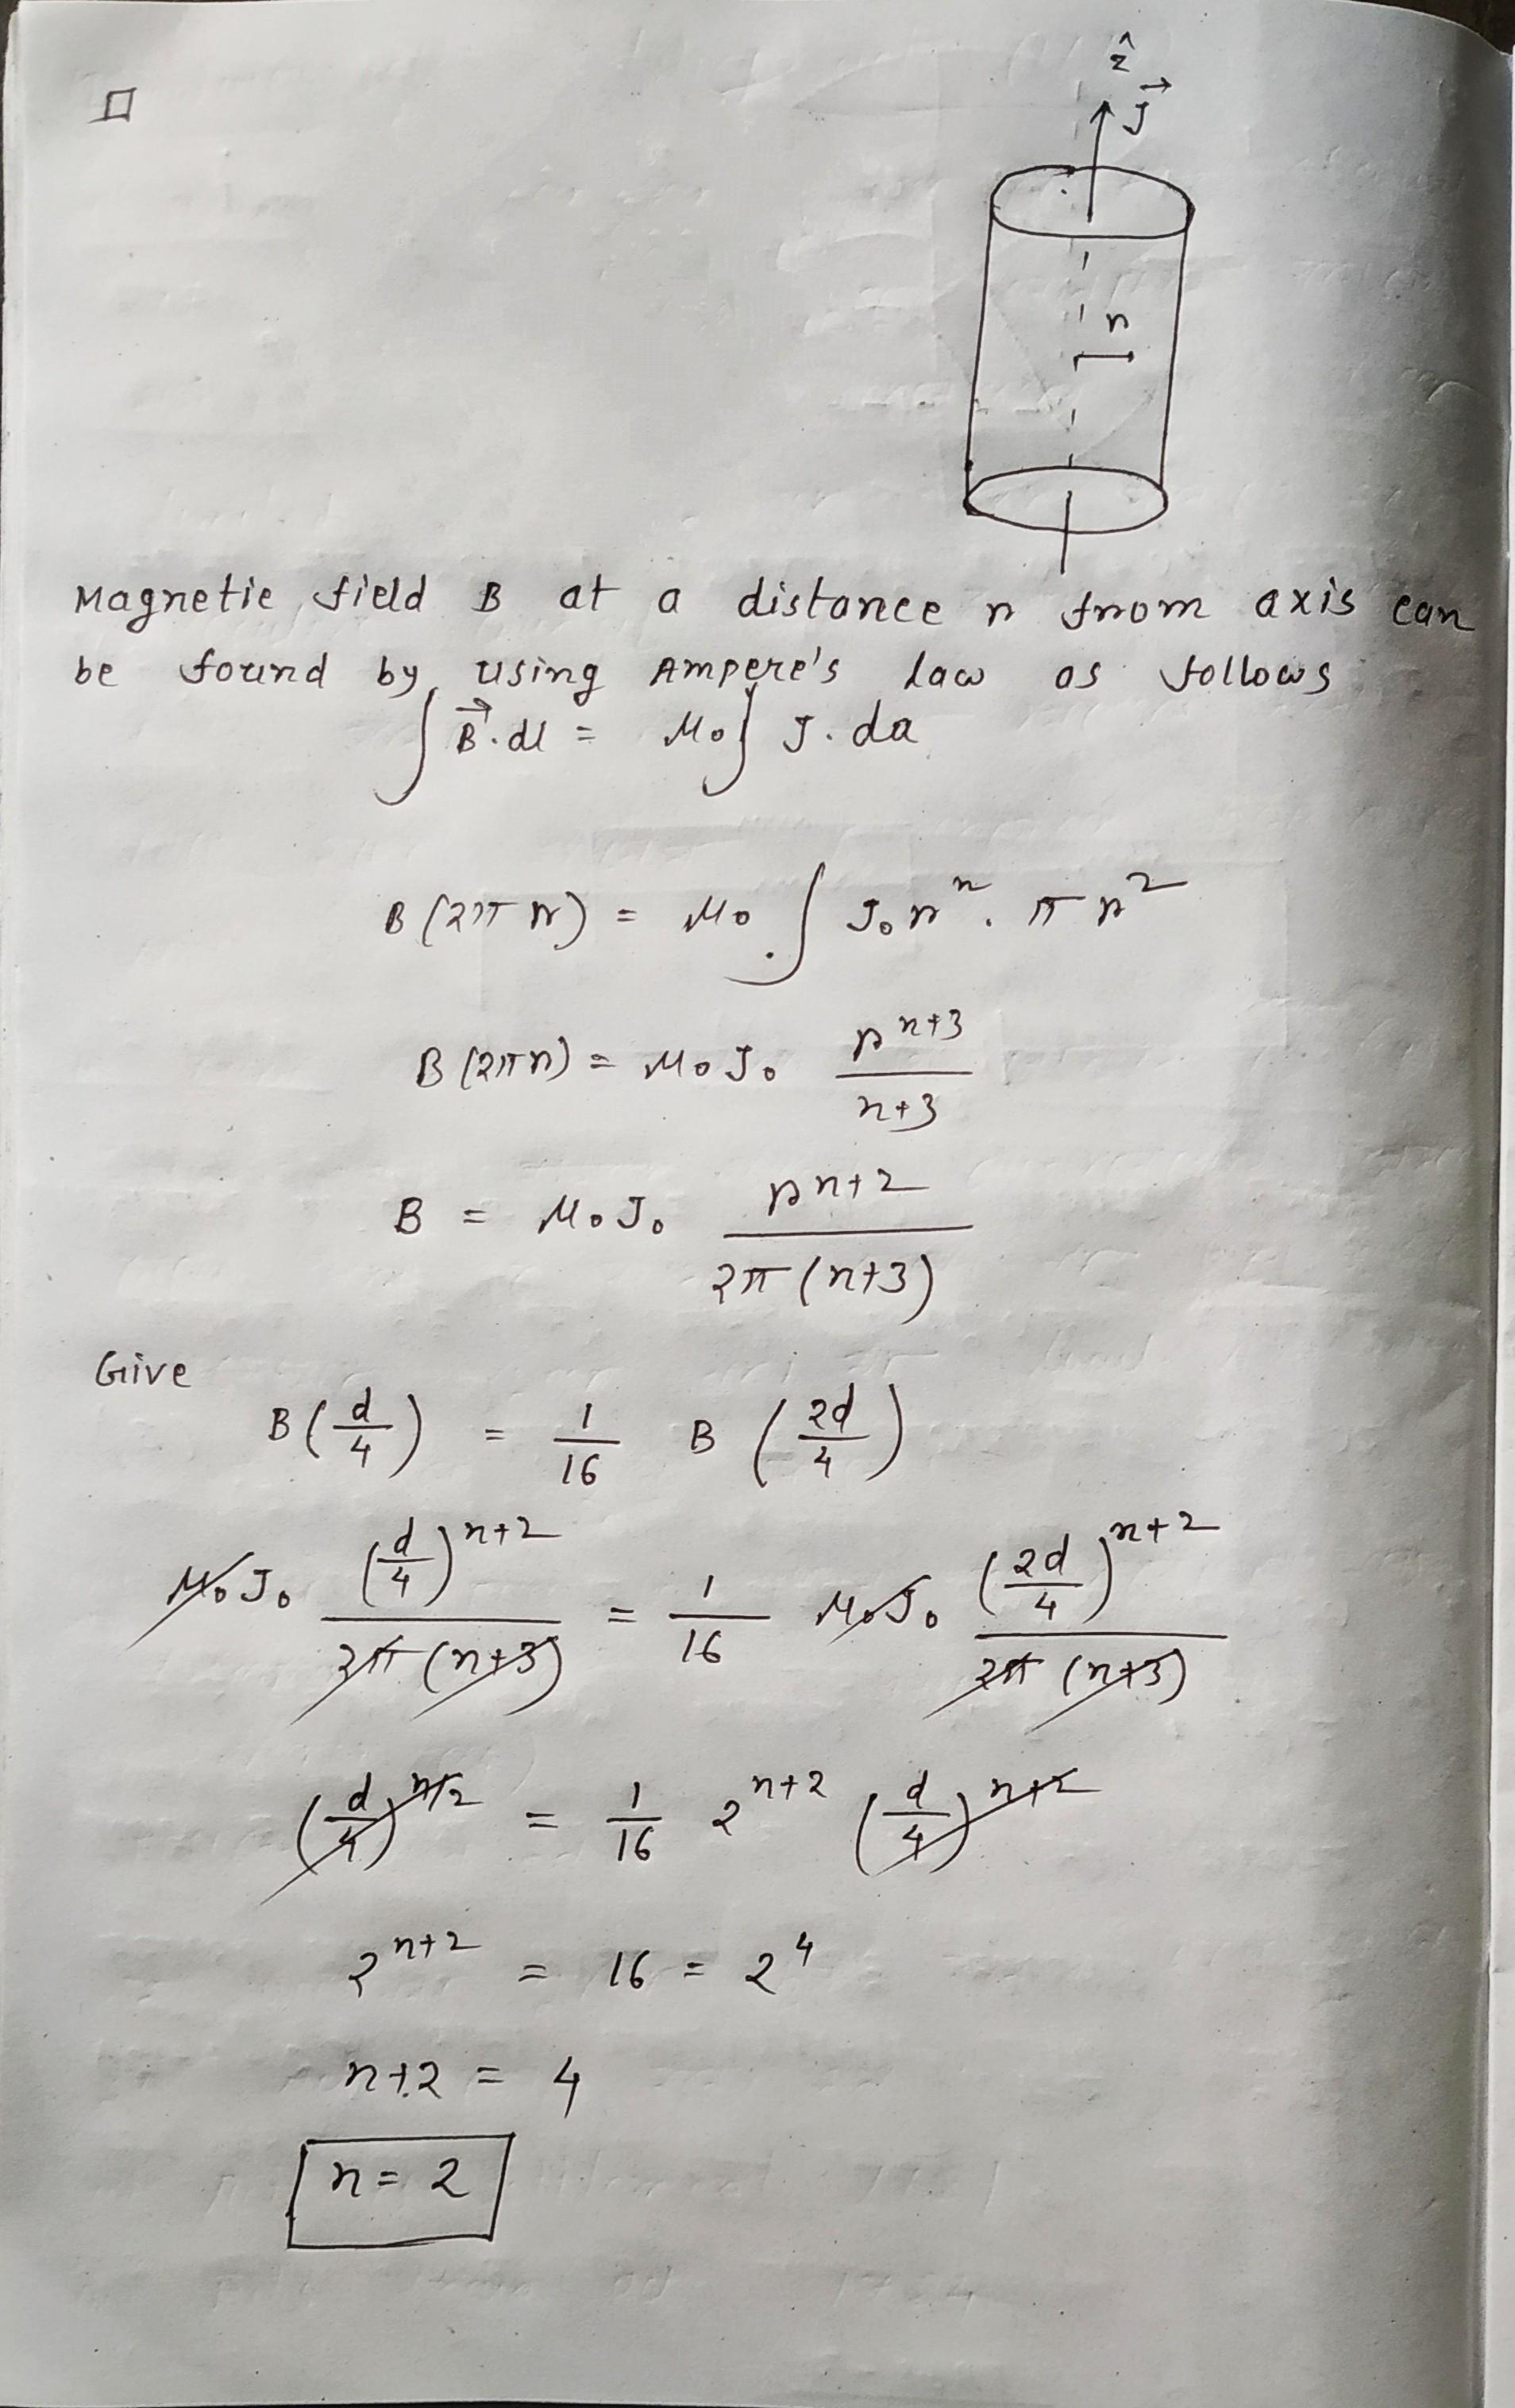 ẑ
J⃗
r
Magnetic field B at a distance r from axis can
be found by using Ampere's law as follows
∫ B⃗.dl = μ₀∫ J.da
B(2πr) = μ₀ ∫ J₀rⁿ. πr²
B(2πr) = μ₀J₀ r^(n+3) / (n+3)
B = μ₀J₀ r^(n+2) / 2π(n+3)
Give
B(d/4) = 1/16 B(2d/4)
μ₀J₀ (d/4)^(n+2) / 2π(n+3) = 1/16 μ₀J₀ (2d/4)^(n+2) / 2π(n+3)
(d/4)^(n+2) = 1/16 2^(n+2) (d/4)^(n+2)
2^(n+2) = 16 = 2⁴
n+2 = 4
n = 2